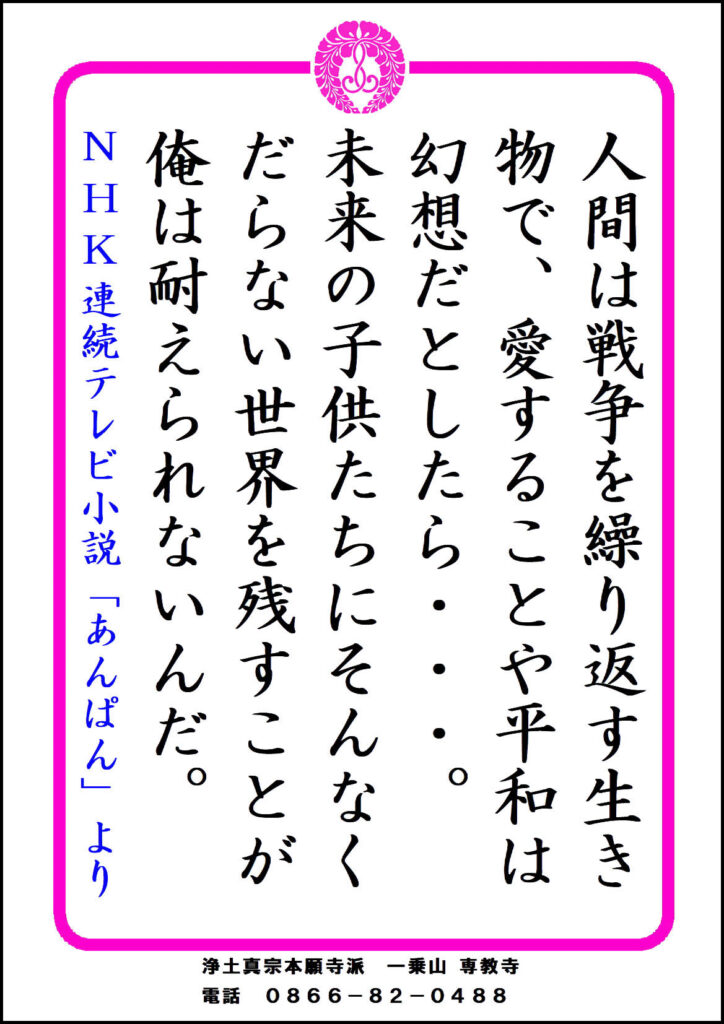 人間は戦争を繰り返す生き
物で、愛することや平和は
幻想だとしたら・・・。
未来の子供たちにそんなく
だらない世界を残すことが
俺は耐えられないんだ。
NHK連続テレビ小説「あんぱん」より
浄土真宗本願寺派　一乗山 専教寺
電話　０８６６－８２－０４８８